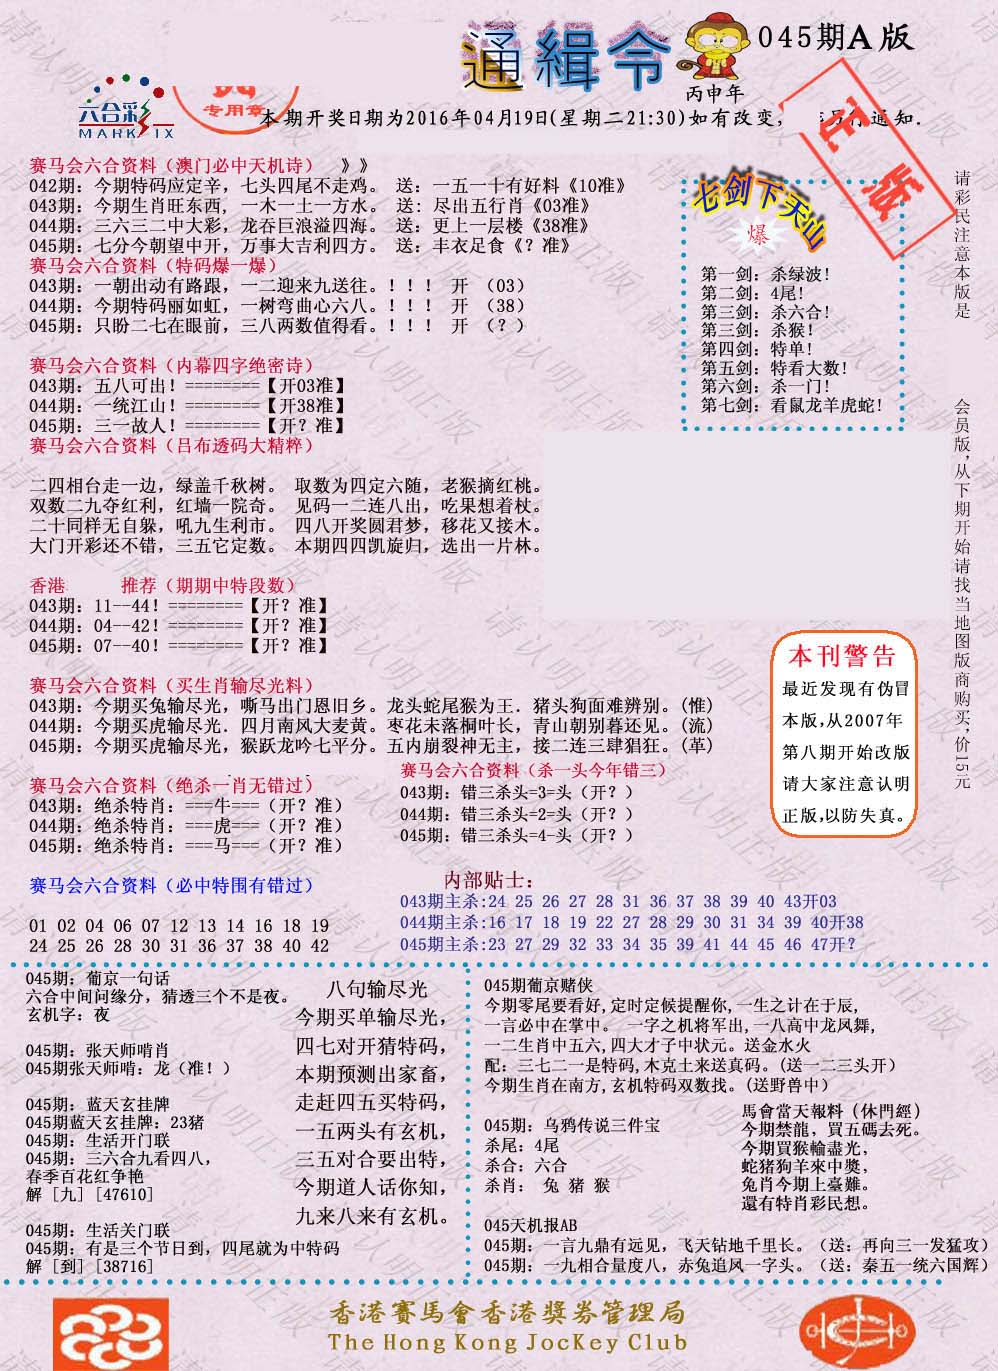 通緝令
045期A版
丙申年
六合彩
MARK SIX
专用章
本期开奖日期为2016年04月19日(星期二21:30)如有改变,
通知.
赛马会六合资料（澳门必中天机诗） 》》
042期: 今期特码应定辛, 七头四尾不走鸡。 送: 一五一十有好料《10准》
043期: 今期生肖旺东西, 一木一土一方水。 送: 尽出五行肖《03准》
044期: 三六三二中大彩, 龙吞巨浪溢四海。 送: 更上一层楼《38准》
045期: 七分今朝望中开, 万事大吉利四方。 送: 丰衣足食《? 准》
赛马会六合资料（特码爆一爆）
043期: 一朝出动有路跟, 一二迎来九送往。! ! ! 开 （03）
044期: 今期特码丽如虹, 一树弯曲心六八。! ! ! 开 （38）
045期: 只盼二七在眼前, 三八两数值得看。! ! ! 开 （? ）
赛马会六合资料（内幕四字绝密诗）
043期: 五八可出! ========【开03准】
044期: 一统江山! ========【开38准】
045期: 三一故人! ========【开? 准】
赛马会六合资料（吕布透码大精粹）
二四相台走一边, 绿盖千秋树。 取数为四定六随, 老猴摘红桃。
双数二九夺红利, 红墙一院奇。 见码一二连八出, 吃果想着杖。
二十同样无自躲, 吼九生利市。 四八开奖圆君梦, 移花又接木。
大门开彩还不错, 三五它定数。 本期四四凯旋归, 选出一片林。
七剑下天山
爆
第一剑: 杀绿波!
第二剑: 4尾!
第三剑: 杀六合!
第三剑: 杀猴!
第四剑: 特单!
第五剑: 特看大数!
第六剑: 杀一门!
第七剑: 看鼠龙羊虎蛇!
请彩民注意本版是
会员版,从下期开始请找当地图版商购买,价15元
香港 推荐（期期中特段数）
043期: 11--44! ========【开? 准】
044期: 04--42! ========【开? 准】
045期: 07--40! ========【开? 准】
赛马会六合资料（买生肖输尽光料）
043期: 今期买兔输尽光, 嘶马出门恩旧乡。龙头蛇尾猴为王. 猪头狗面难辨别。(惟)
044期: 今期买虎输尽光. 四月南风大麦黄。枣花未落桐叶长, 青山朝别暮还见。(流)
045期: 今期买马输尽光, 猴跃龙吟七平分。五内崩裂神无主, 接二连三肆猖狂。(革)
本刊警告
最近发现有伪冒
本版,从2007年
第八期开始改版
请大家注意认明
正版,以防失真。
赛马会六合资料（绝杀一肖无错过）
043期: 绝杀特肖: ===牛===（开? 准）
044期: 绝杀特肖: ===虎===（开? 准）
045期: 绝杀特肖: ===马===（开? 准）
赛马会六合资料（杀一头今年错三）
043期: 错三杀头=3=头（开? ）
044期: 错三杀头=2=头（开? ）
045期: 错三杀头=4-头（开? ）
赛马会六合资料（必中特围有错过）
01 02 04 06 07 12 13 14 16 18 19
24 25 26 28 30 31 36 37 38 40 42
内部贴士:
043期主杀:24 25 26 27 28 31 36 37 38 39 40 43开03
044期主杀:16 17 18 19 22 27 28 29 30 31 34 39 40开38
045期主杀:23 27 29 32 33 34 35 39 41 44 45 46 47开?
045期: 葡京一句话
六合中间问缘分, 猜透三个不是夜。
玄机字: 夜
045期: 张天师啃肖
045期张天师啃: 龙（准! ）
045期: 蓝天玄挂牌
045期蓝天玄挂牌: 23猪
045期: 生活开门联
045期: 三六合九看四八,
春季百花红争艳
解 [九] [47610]
045期: 生活关门联
045期: 有是三个节日到, 四尾就为中特码
解 [到] [38716]
八句输尽光
今期买单输尽光,
四七对开猜特码,
本期预测出家畜,
走赶四五买特码,
一五两头有玄机,
三五对合要出特,
今期道人话你知,
九来八来有玄机。
045期葡京赌侠
今期零尾要看好, 定时定候提醒你, 一生之计在于辰,
一言必中在掌中。 一字之机将军出, 一八高中龙凤舞,
一二生肖中五六, 四大才子中状元。送金水火
配: 三七二一是特码, 木克土来送真码。(送一二三头开）
今期生肖在南方, 玄机特码双数找。(送野兽中）
045期: 乌鸦传说三件宝
杀尾: 4尾
杀合: 六合
杀肖: 兔 猪 猴
馬會當天報料（休門經）
今期禁龍, 買五碼去死。
今期買猴輸盡光,
蛇猪狗羊來中獎,
兔肖今期上臺難。
還有特肖彩民想。
045天机报AB
045期: 一言九鼎有远见, 飞天钻地千里长。（送: 再向三一发猛攻）
045期: 一九相合量度八, 赤兔追风一字头。（送: 秦五一统六国辉）
香港賽馬會香港獎券管理局
The Hong Kong Jockey Club